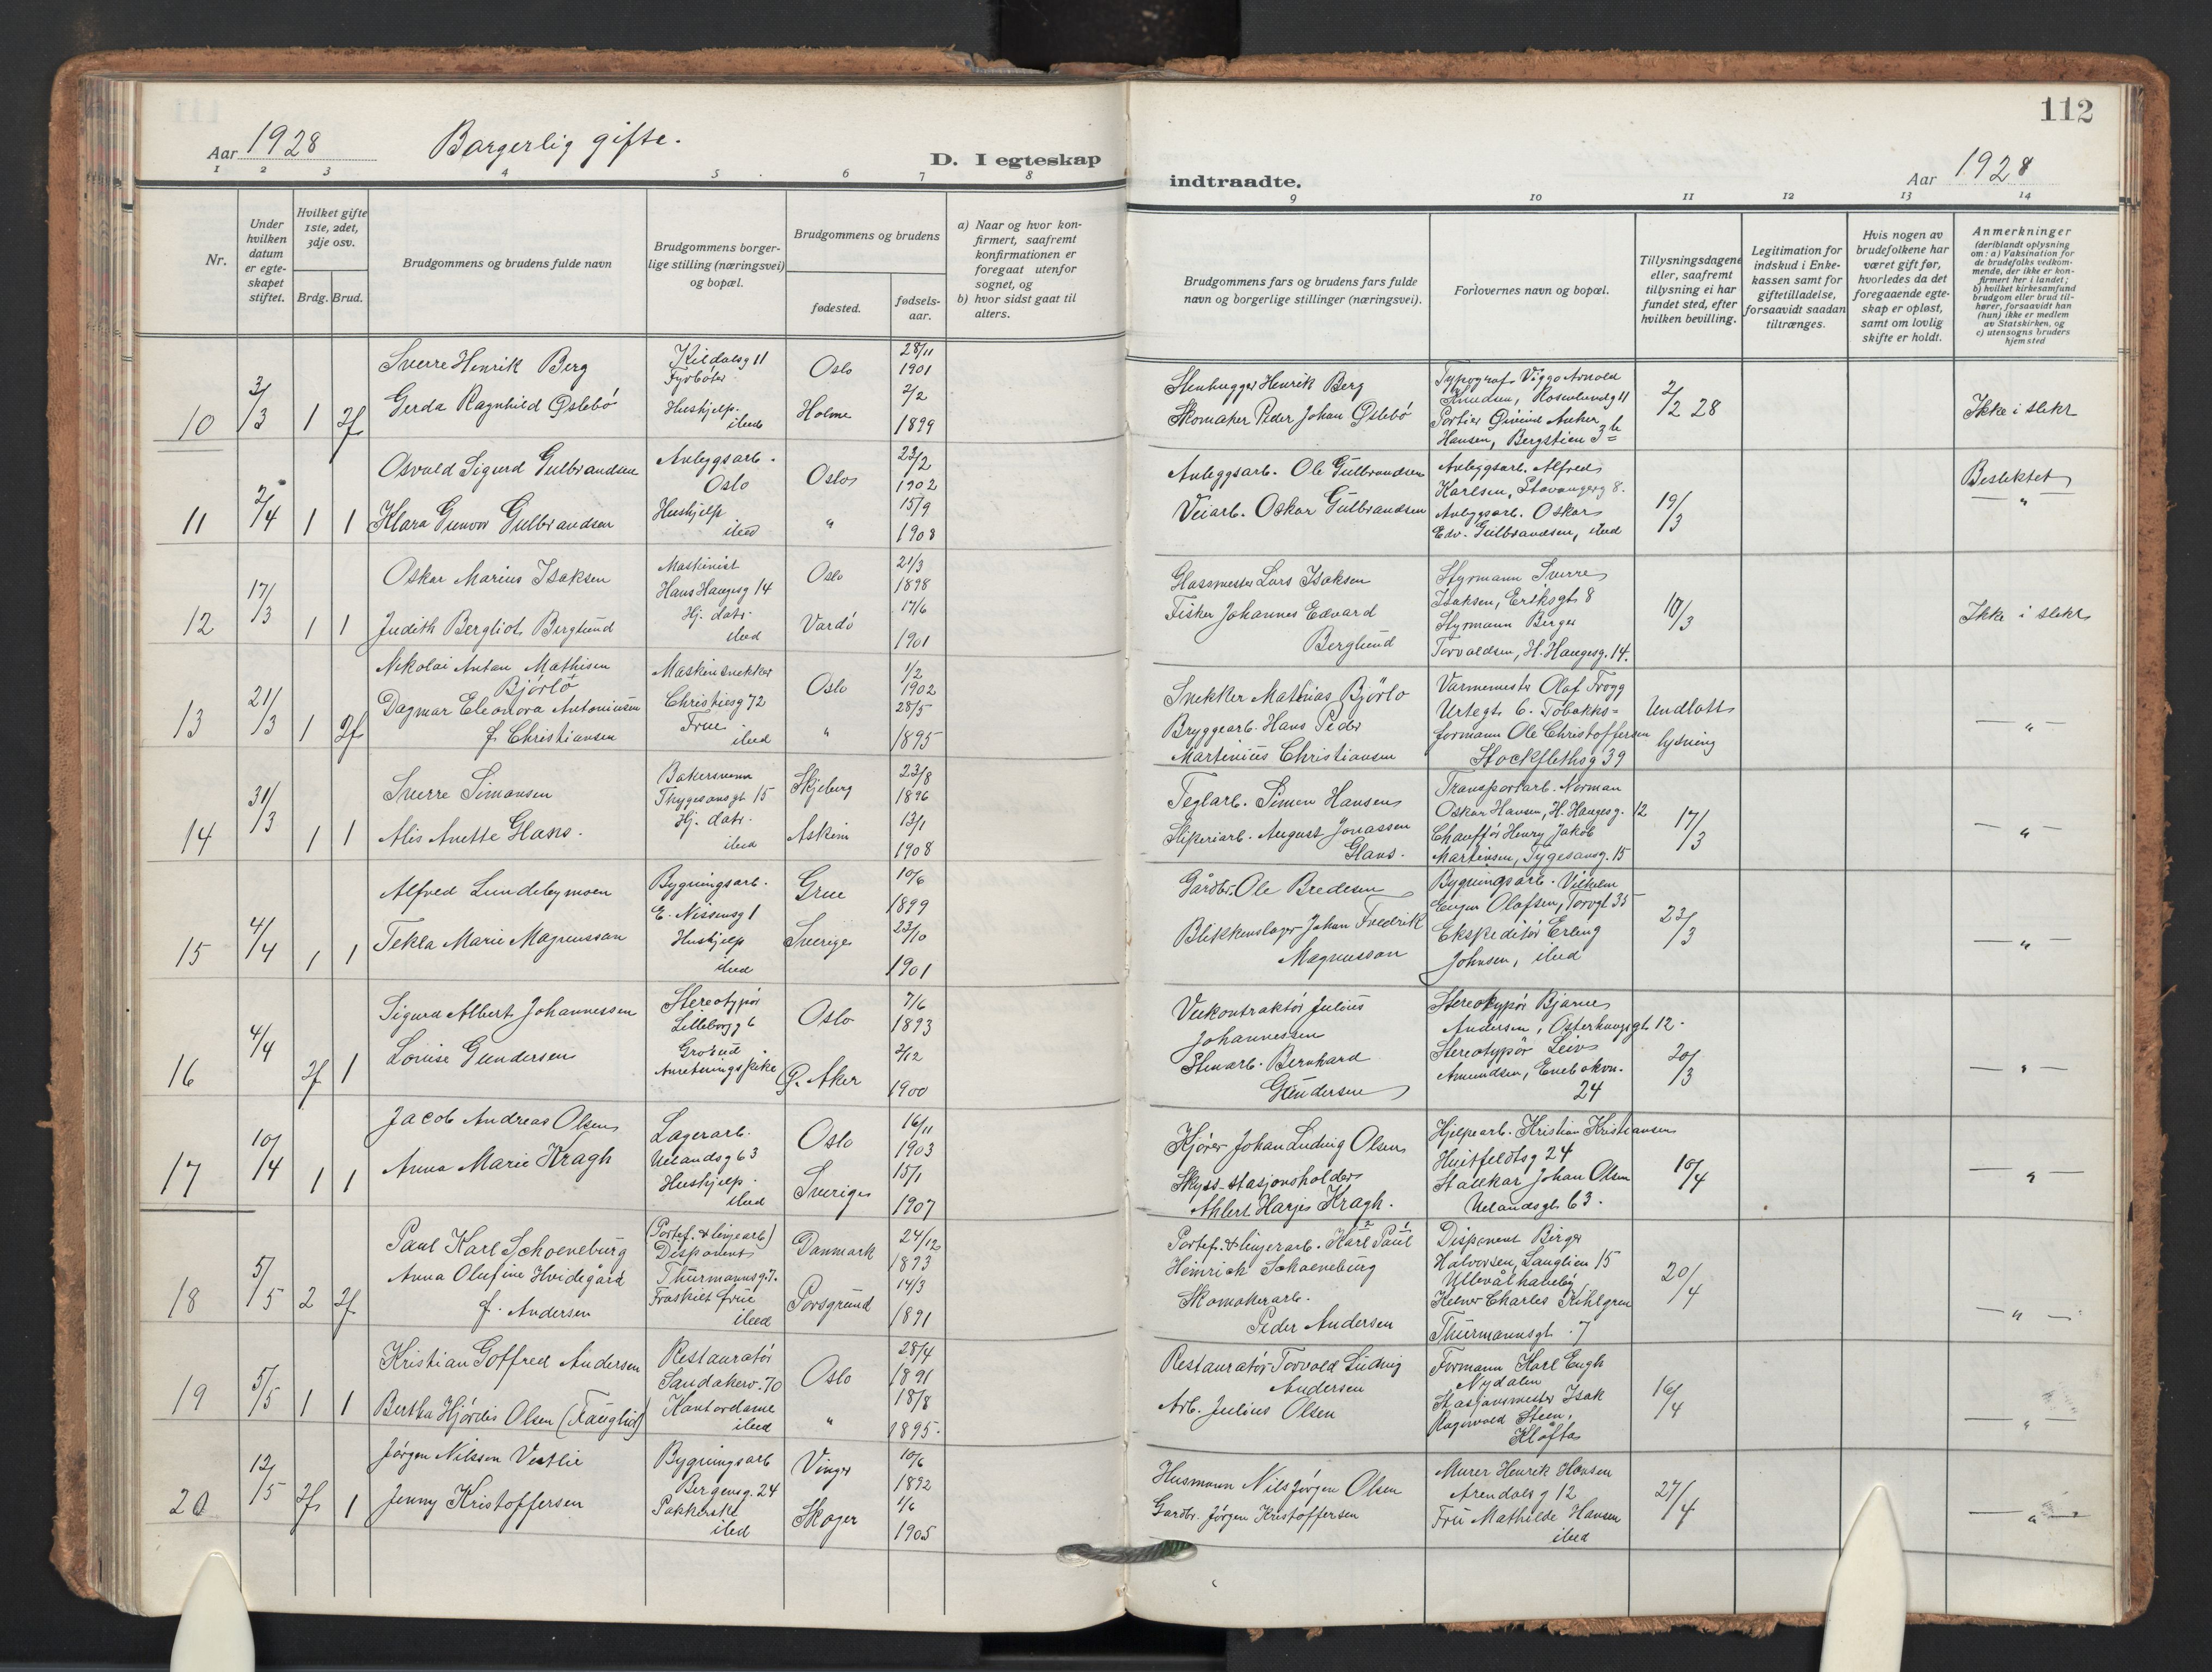 112
Aar 1928
Borgerlig gifte.
D. I egteskap
indtraadte.
Aar 1928
1 2 3 4 5 6 7 8
9 10 11 12 13 14
Nr.
Under hvilken datum er egteskapet stiftet.
Hvilket gifte 1ste, 2det, 3dje osv.
Brdg. Brud.
Brudgommens og brudens fulde navn
Brudgommens borgerlige stilling (næringsvei) og bopæl.
Brudgommens og brudens
fødested.
fødsels-aar.
a) Naar og hvor konfirmert, saafremt konfirmationen er foregaat utenfor sognet, og
b) hvor sidst gaat til alters.
Brudgommens fars og brudens fars fulde navn og borgerlige stillinger (næringsvei).
Forlovernes navn og bopæl.
Tillysningsdagene eller, saafremt tillysning ei har fundet sted, efter hvilken bevilling.
Legitimation for indskud i Enkekassen samt for giftetilladelse, forsaavidt saadan tiltrænges.
Hvis nogen av brudefolkene har været gift før, hvorledes da det foregaaende egteskap er opløst, samt om lovlig skifte er holdt.
Anmerkninger
(deriblandt oplysning om: a) Vaksination for de brudefolks vedkommende, der ikke er konfirmert her i landet; b) hvilket kirkesamfund brudgom eller brud tilhører, forsaavidt han (hun) ikke er medlem av Statskirken, og c) utensogns bruders hjemsted
10 3/3 1 2f
Sverre Henrik Berg
Gerda Ragnhild Østebö
Kildalsg 11
Fyrböter
Hushjelp.
ibid
Oslo
Holme
28/11 1901
2/2 1899
Stenhugger Henrik Berg
Skomaker Peder Johan Østebö
Typograf Viggo Arnold
Knudsen, Rosenlundg 11
Portier Øivind Anker
Hansen, Bergstien 3 b
2/2 28
Ikke i slekt
11 2/4 1 1
Osvald Sigurd Gulbrandsen
Klara Gunvor Gulbrandsen
Anleggsarb.
Oslo
Hushjelp
ibid
Oslo
"
23/2 1902
15/9 1908
Anleggsarb. Ole Gulbrandsen
Veiarb. Oskar Gulbrandsen
Anleggsarb. Alfred
Karlsen, Stavangerg 8.
Anleggsarb. Oskar
Edv. Gulbrandsen, ibid
19/3
Beslektet
— " —
12 17/3 1 1
Oskar Marius Isaksen
Judith Bergliot Berglund
Maskinist
Hans Haugesg 14
Hj. datr.
ibid
Oslo
Vardö
21/3 1898
17/6 1901
Glassmester Lars Isaksen
Fisker Johannes Edvard
Berglund
Styrmann Sverre
Isaksen, Eriksgt 8
Styrmann Birger
Torvaldsen, H. Haugesg. 14.
10/3
Ikke i slekt
13 21/3 1 2f
Nikolai Anton Mathisen
Björlö
Dagmar Eleonora Antoniusen
f. Christiansen
Maskinsnekker
Christiesg 72
Frue
ibid
Oslo
"
1/2 1902
28/5 1895
Snekker Mathias Björlo
Bryggearb. Hans Peder
Martinius Christiansen
Varmemester Olaf Frogg
Urtegt 6. Tobakks=
formann Ole Christoffersen
Stockflethsg 39
Undlatt
lysning
— " —
14 31/3 1 1
Sverre Simonsen
Alis Anette Glans.
Bakersvenn
Thygesonsgt 15
Hj. datr.
ibid
Skjeberg
Askim
23/8 1896
13/1 1908
Teglarb. Simen Hansen
Sliperiarb. August Jonassen
Glans.
Transportarb. Norman
Oskar Hansen, H. Haugesg. 12
Chauffør Henry Jakob
Martinsen, Tygesonsg. 15
17/3
— " —
15 4/4 1 1
Alfred Lundebymoen
Tekla Marie Magnusson
Bygningsarb.
E. Nissensg 1
Hushjelp
ibid
Grue
Sverige
10/6 1899
23/10 1901
Gårdbr. Ole Bredesen
Blikkenslager Johan Fredrik
Magnusson
Bygningsarb. Vilhelm
Eugen Olafsen, Torvgt 35
Ekspeditör Erling
Johnsen, ibid
23/3
— " —
16 4/4 2f 1
Sigurd Albert Johannessen
Lovise Gundersen
Stereotypör
Lilleborgg 6
Grorud
Anretningspike
Oslo
Ø. Aker
7/6 1893
2/12 1900
Veikontraktör Julius
Johannessen
Stenarb. Bernhard
Gundersen
Stereotypör Bjarne
Andersen, Österhausgt 12.
Stereotypör Leiv
Amundsen, Enebakvn.
24
20/3
— " —
17 10/4 1 1
Jacob Andreas Olsen
Anna Marie Kragh
Lagerarb.
Uelandsg 63
Hushjelp.
ibid
Oslo
Sverige
16/11 1903
15/1 1907
Kjörer Johan Ludvig Olsen
Skyss-stasjonsholder
Ahlert Harjes Kragh.
Hjelpearb. Kristian Kristiansen
Huitfeldtsg 24
Stallkar Johan Olsen
Uelandsgt 63.
10/4
— " —
18 5/5 2 2f
Paul Karl Schoeneburg
Anna Olufine Hvidegård
f. Andersen
(Portef. & linjearb)
Disponent
Thurmannsg. 7.
Fraskilt frue
ibid
Danmark
Porsgrund
24/12 1893
14/3 1891
Portef. & linjerarb. Karl Paul
Heinrich Schoeneburg
Skomakerarb.
Peder Andersen
Disponent Birger
Halvorsen, Langlien 15
Ullevål haveby
Kelner Charles Kihlgren
Thurmannsgt. 7
20/4
— " —
19 5/5 1 1
Kristian Goffred Andersen
Bertha Hjördis Olsen (Fauglid)
Restauratör
Sandakerv. 70
Kontordame
ibid
Oslo
"
28/4 1891
18/8 1895.
Restauratör Torvald Ludvig
Andersen
Arb. Julius Olsen
Formann Karl Engh
Nydalen
Stasjonsmester Isak
Ragnvald Steen,
Kløfta
16/4
— " —
20 12/5 2f 1
Jörgen Nilssen Vestlie
Jenny Kristoffersen
Bygningsarb
Bergensg. 24
Pakkerske
ibid
Vinger
Skoger
10/6 1892
1/6 1905
Husmann Nils Jörgen Olsen
Gardbr. Jörgen Kristoffersen
Murer Henrik Hansen
Arendalsg 12
Frü Mathilde Hansen
ibid
27/4
— " —